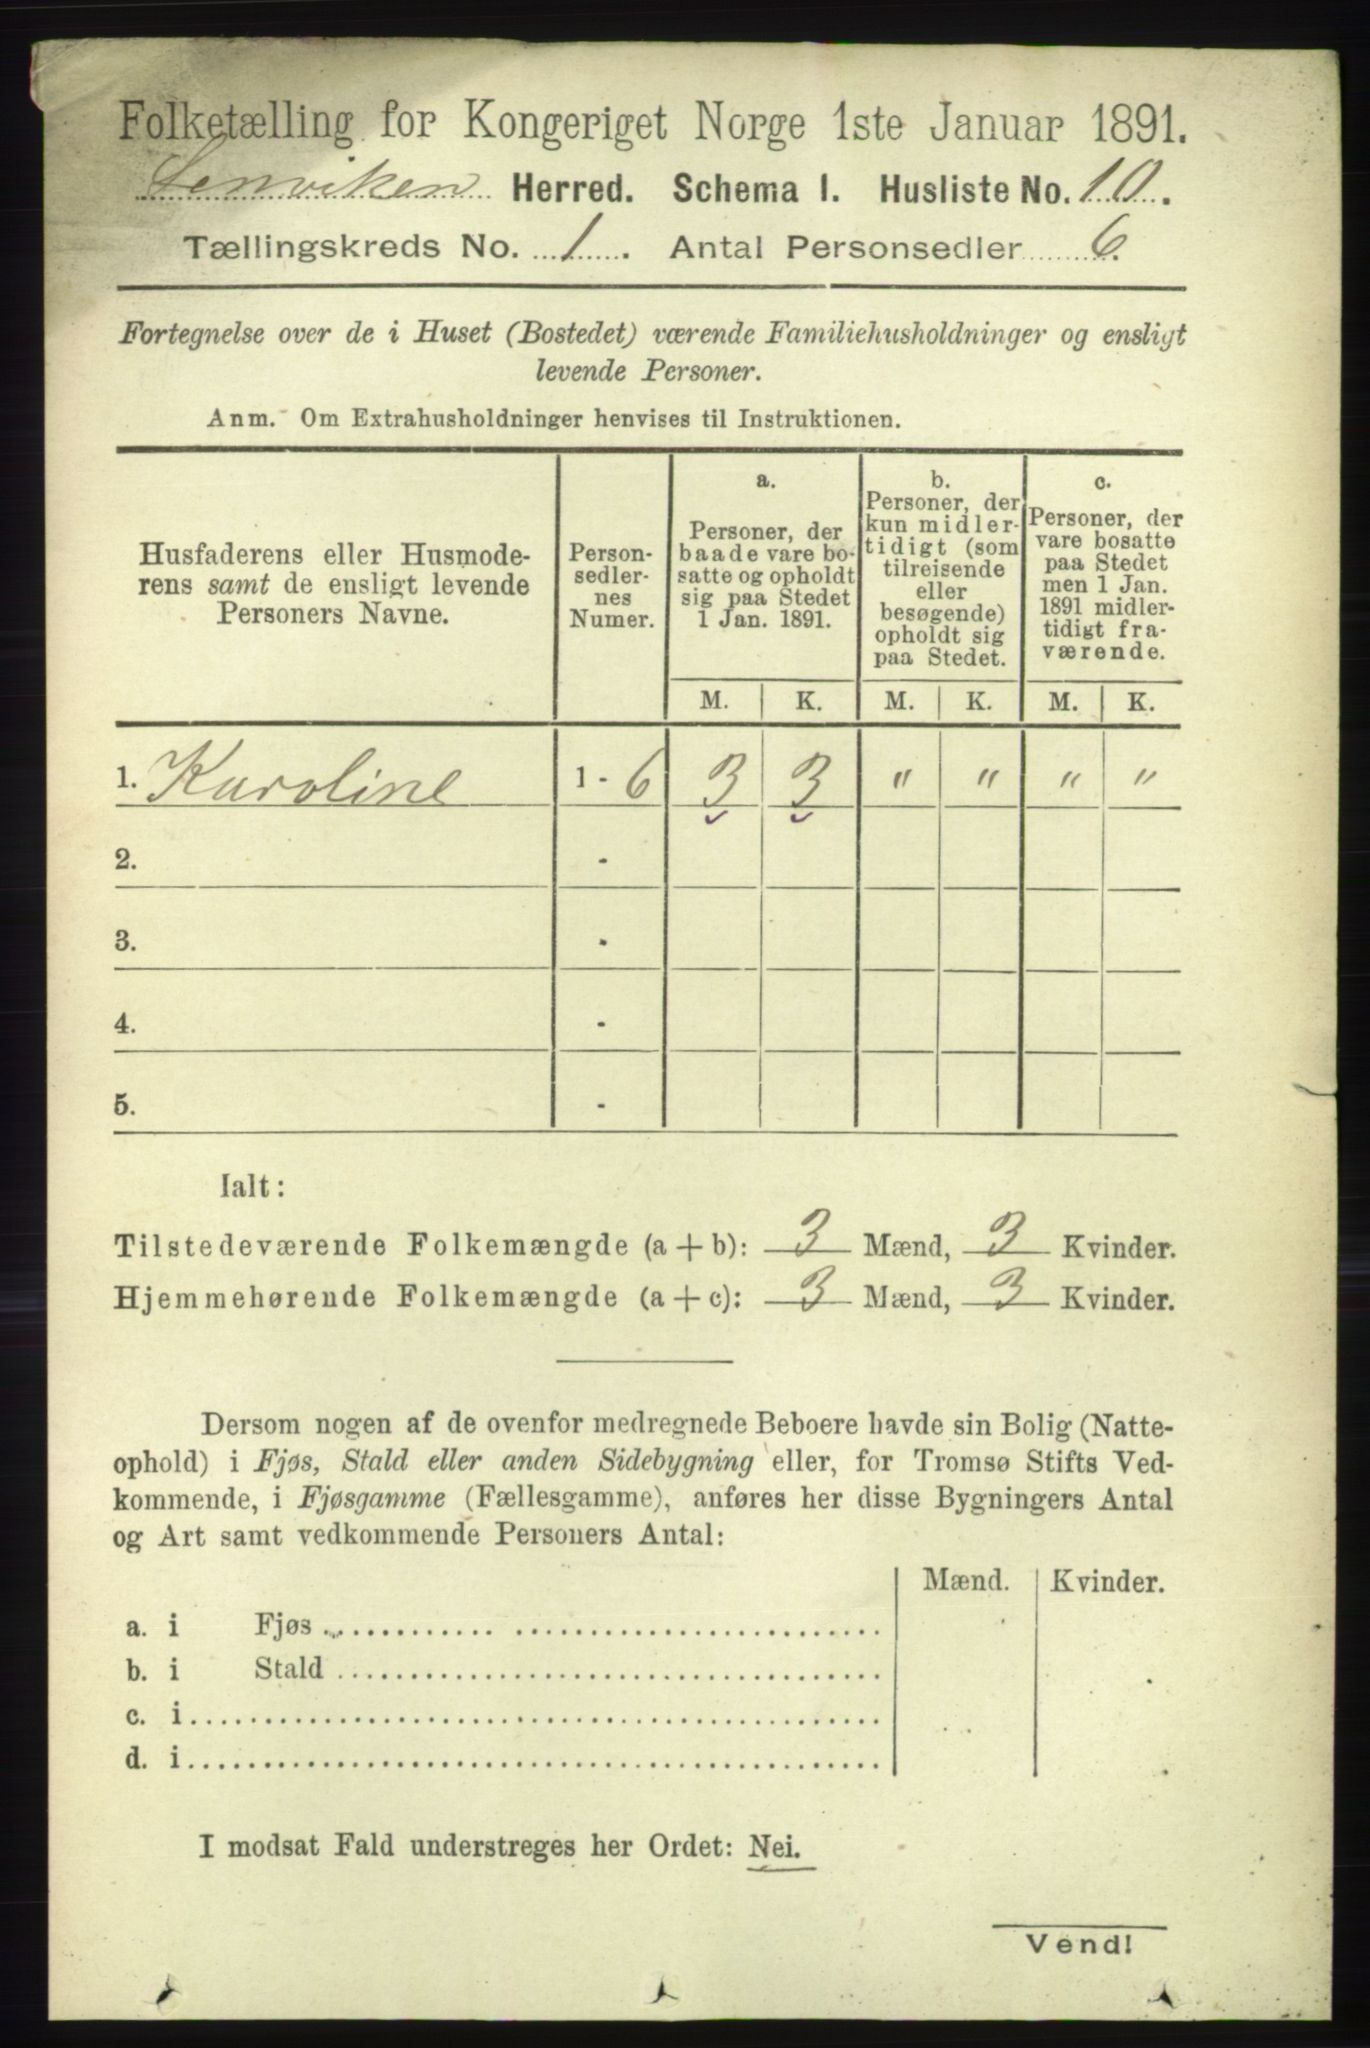 Folketælling for Kongeriget Norge 1ste Januar 1891.
Lenviken Herred. Schema I. Husliste No. 10.
Tællingskreds No. 1. Antal Personsedler 6.
Fortegnelse over de i Huset (Bostedet) værende Familiehusholdninger og ensligt
levende Personer.
Anm. Om Extrahusholdninger henvises til Instruktionen.
Husfaderens eller Husmode-
rens samt de ensligt levende
Personers Navne.
Person-
sedler-
nes
Numer.
a.
Personer, der
baade vare bo-
satte og opholdt
sig paa Stedet
1 Jan. 1891.
b.
Personer, der
kun midler-
tidigt (som
tilreisende
eller
besøgende)
opholdt sig
paa Stedet.
c.
Personer, der
vare bosatte
paa Stedet
men 1 Jan.
1891 midler-
tidigt fra-
værende.
M. K. M. K. M. K.
1. Karoline 1 - 6 3 3 " " " "
2. -
3. -
4. -
5. -
Ialt:
Tilstedeværende Folkemængde (a + b): 3 Mænd, 3 Kvinder.
Hjemmehørende Folkemængde (a + c): 3 Mænd, 3 Kvinder.
Dersom nogen af de ovenfor medregnede Beboere havde sin Bolig (Natte-
ophold) i Fjøs, Stald eller anden Sidebygning eller, for Tromsø Stifts Ved-
kommende, i Fjøsgamme (Fællesgamme), anføres her disse Bygningers Antal
og Art samt vedkommende Personers Antal:
Mænd. Kvinder.
a. i Fjøs
b. i Stald
c. i
d. i
I modsat Fald understreges her Ordet: Nei.
Vend!